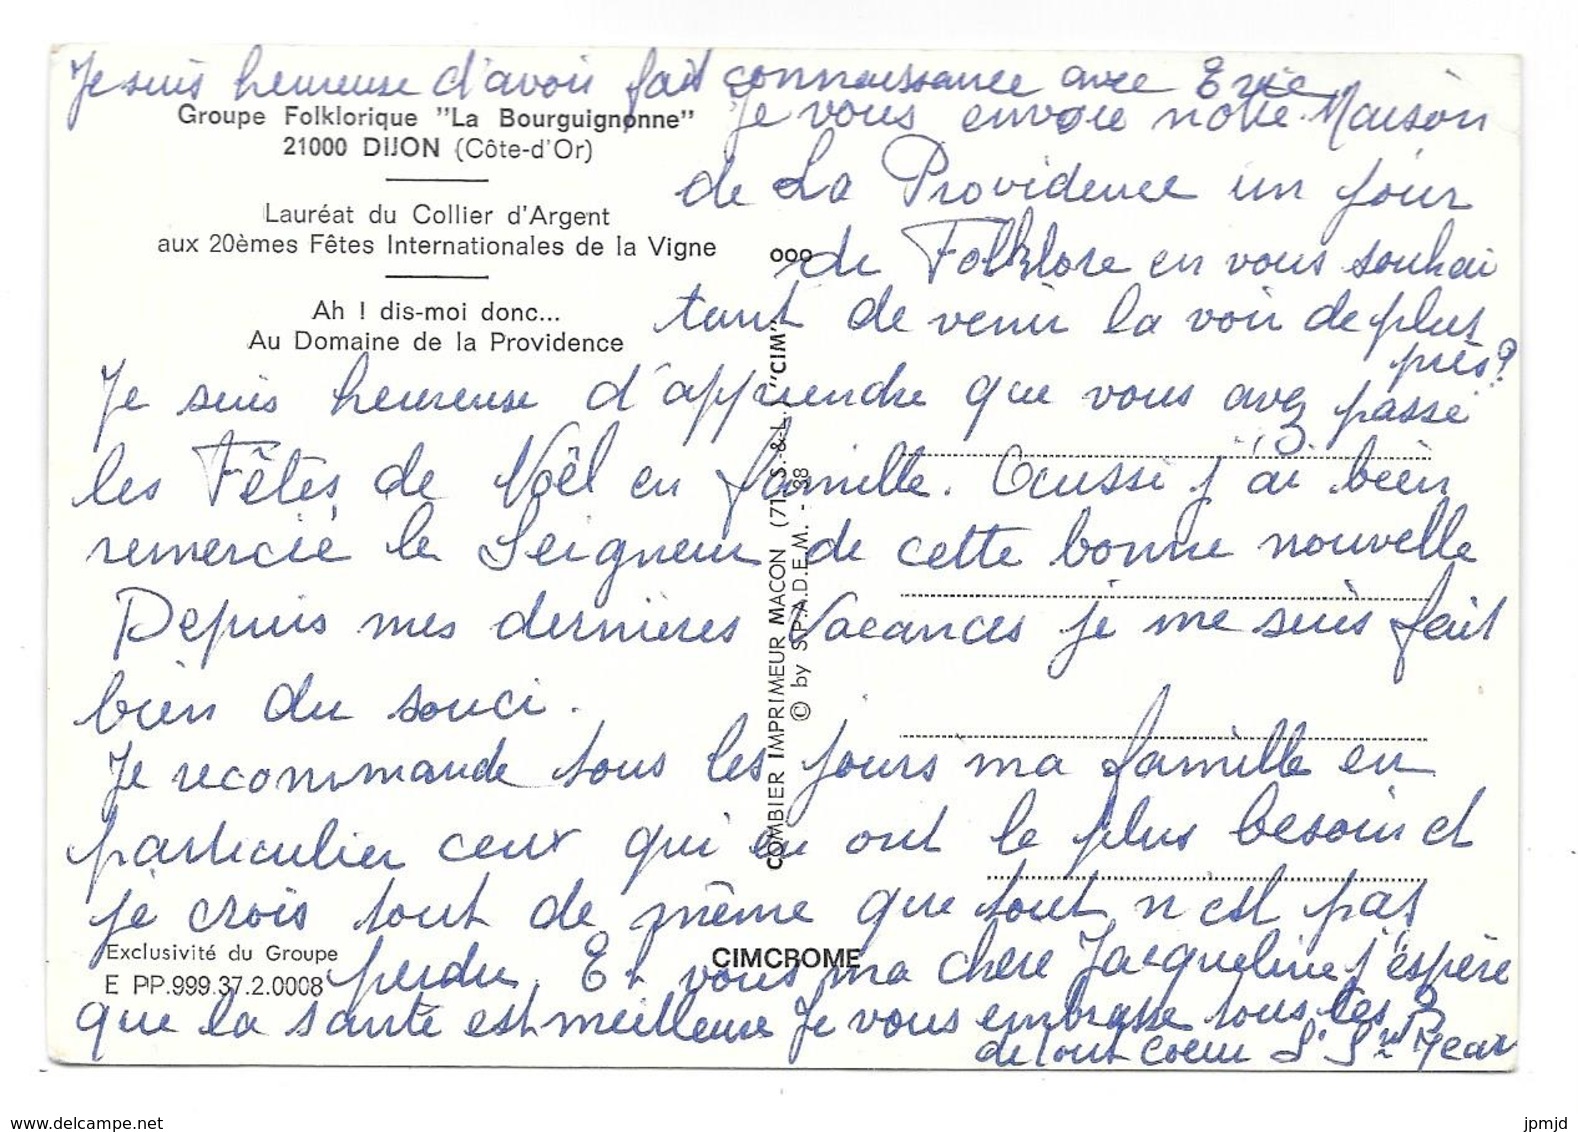 Je suis heureuse d'avoir fait connaissance avec Evie
Groupe Folklorique "La Bourguignonne"
21000 DIJON (Côte-d'Or)
Lauréat du Collier d'Argent
aux 20èmes Fêtes Internationales de la Vigne
Ah ! dis-moi donc...
Au Domaine de la Providence
Je vous envoie notre Maison
de La Providence un jour
de Folklore en vous souhai
tant de venir la voir de plus
près?
Je suis heureuse d'apprendre que vous avez passé
les Fêtes de Noêl en famille. Aussi j'ai bien
remercié le Seigneur de cette bonne nouvelle
Depuis mes dernières Vacances je me suis fait
bien du souci.
Je recommande tous les jours ma famille en
particulier ceux qui en ont le plus besoin et
je crois tout de même que tout n'est pas
perdu. Et vous ma chère Jacqueline j'espère
que la santé est meilleure Je vous embrasse tous les 3
de tout coeur Sr St Jean
Exclusivité du Groupe
E PP.999.37.2.0008
CIMCROME
COMBIER IMPRIMEUR MACON (71) S. & L. "CIM"
© by S.P.A.D.E.M. - 88
www.delcampe.net
jpmjd